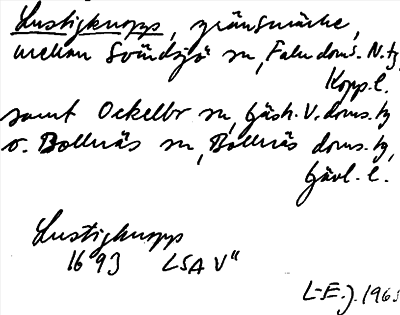 Lustigknopp, gränsmärke,
mellan Svärdsjö sn, Falu doms. N. tg,
Kopp. l.
samt Ockelbo sn, Gästr. V. doms. tg
o. Bollnäs sn, Bollnäs doms. tg,
Gävl. l.
Lustigknopp
1693 LSA V"
L-E. J. 1963